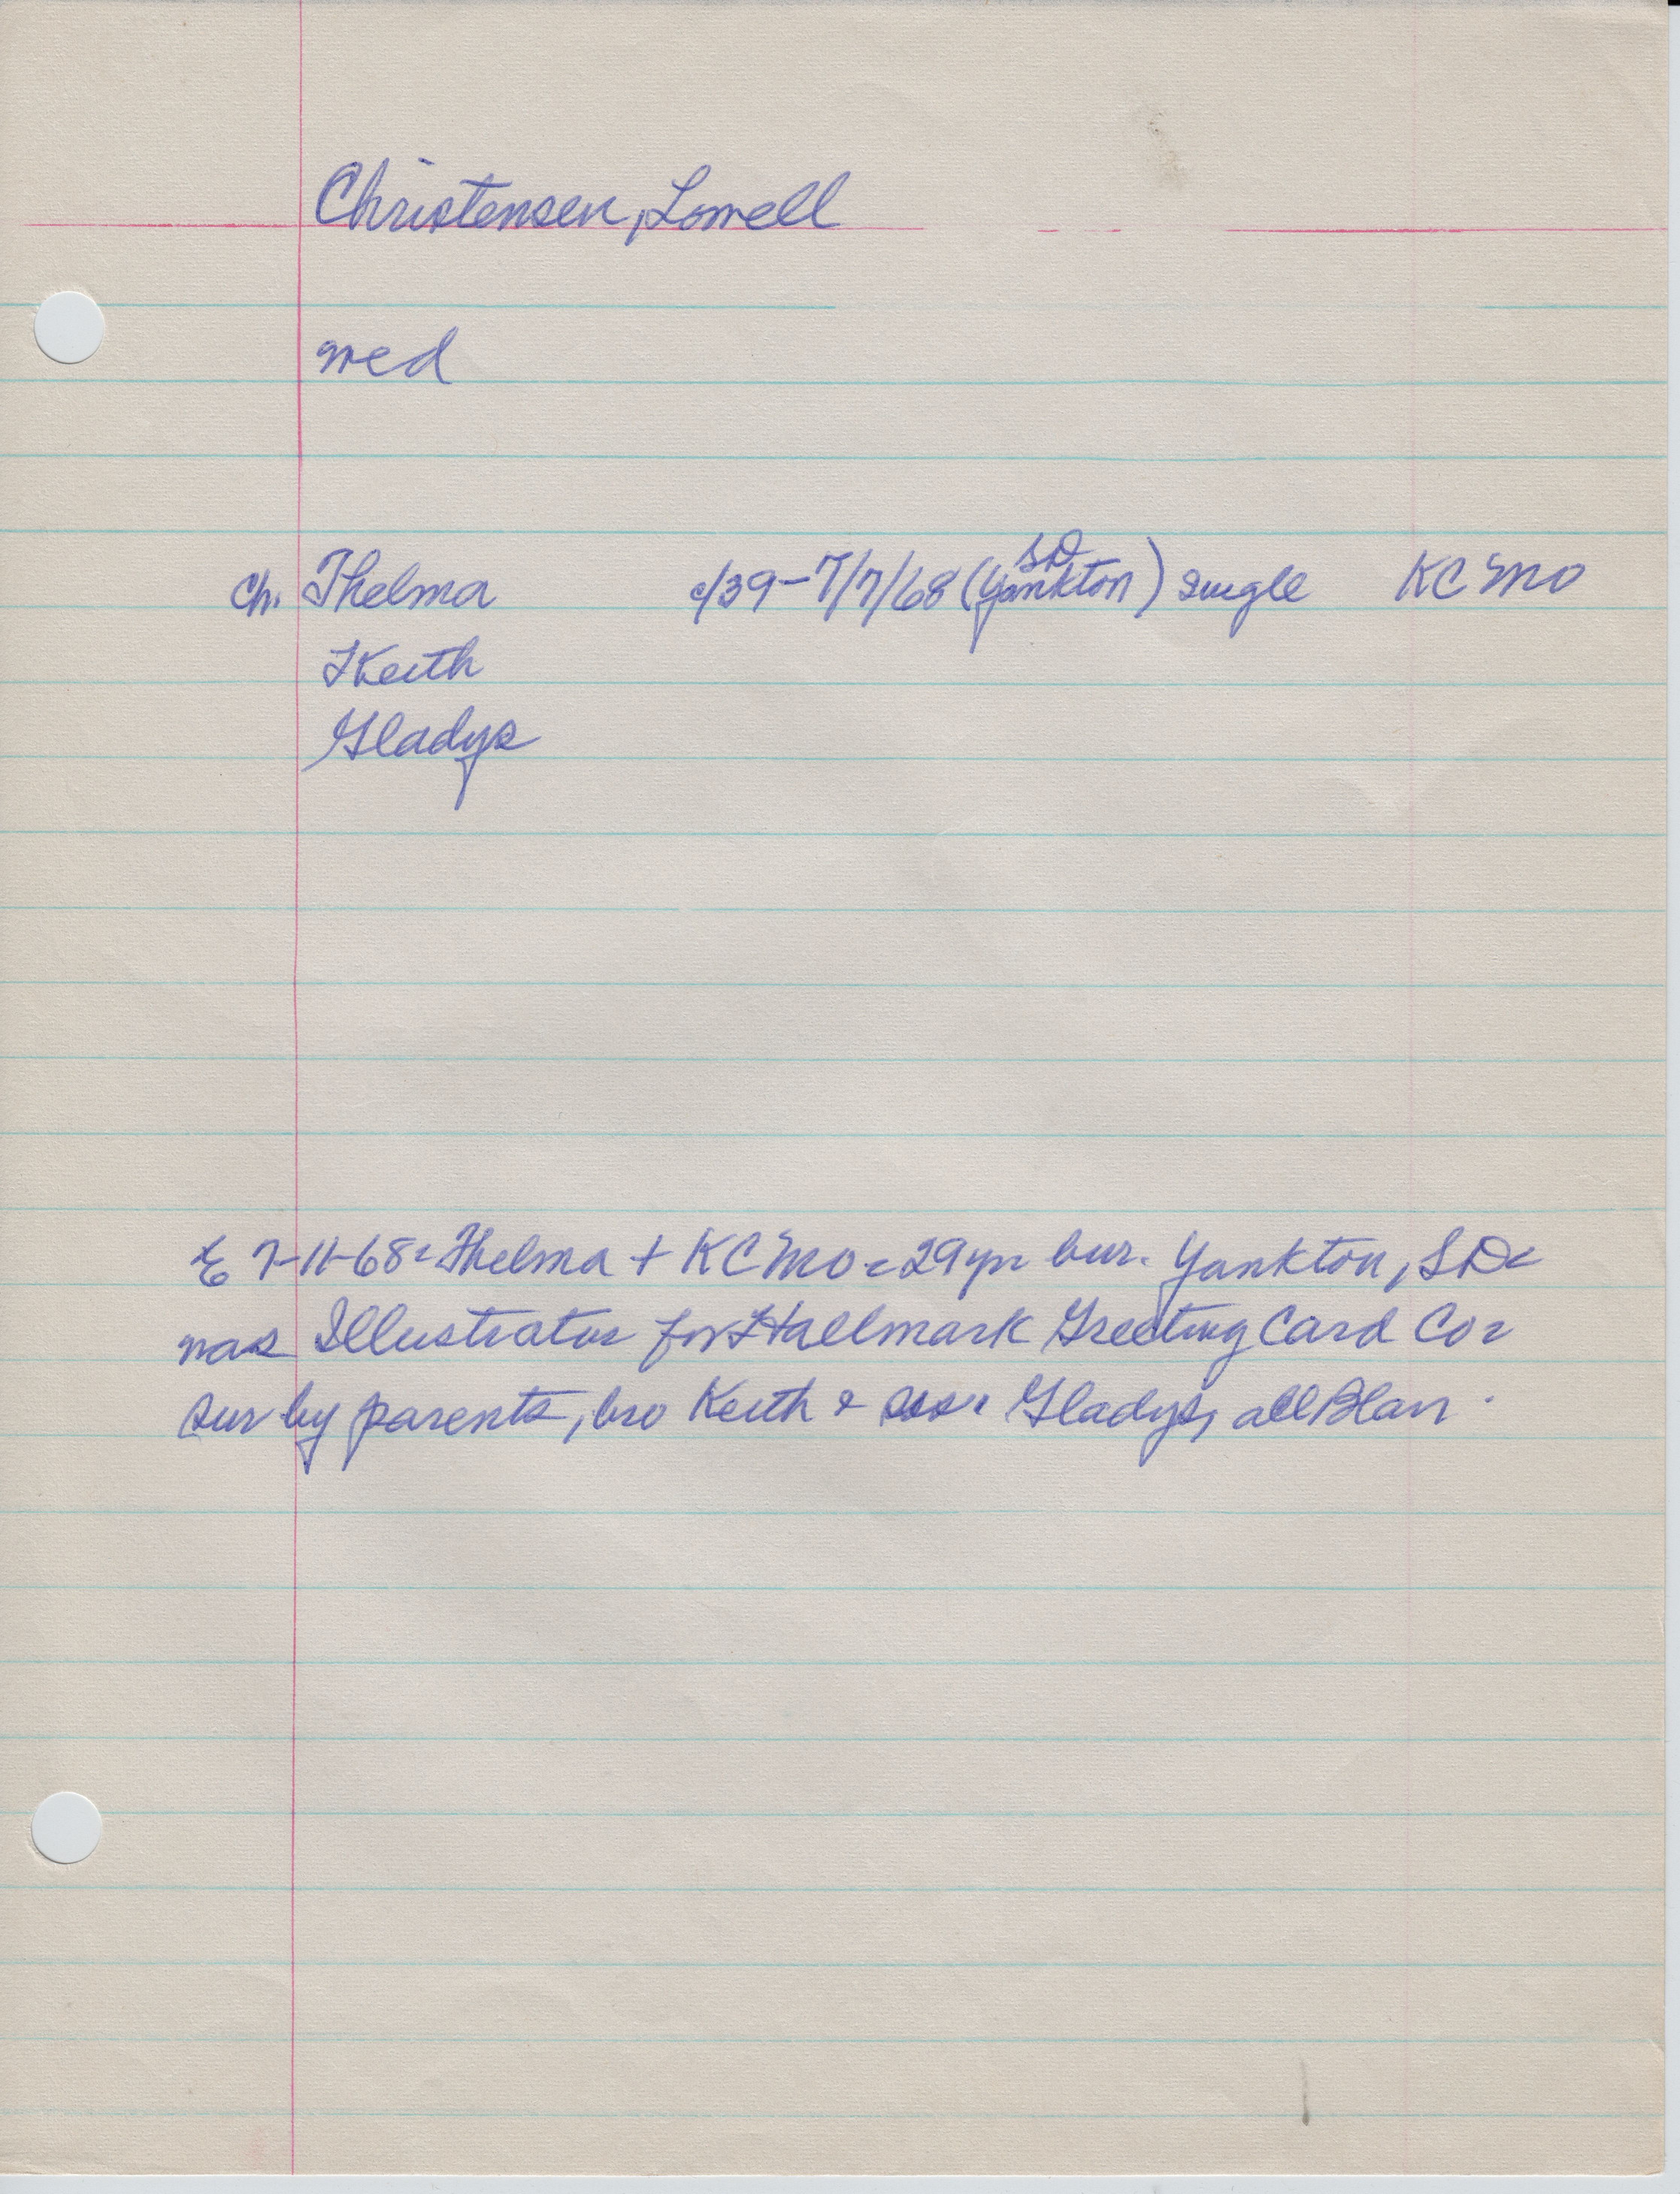 Christensen, Lowell
wed
ch. Thelma c/39-7/7/68 (Yankton SD) single KC Mo
Keith
Gladys
E 7-11-68: Thelma + KC Mo - 29 yr bur. Yankton, SD -
was Illustrator for Hallmark Greeting Card Co -
sur by parents, bro Keith & sis. Gladys, all Blair.